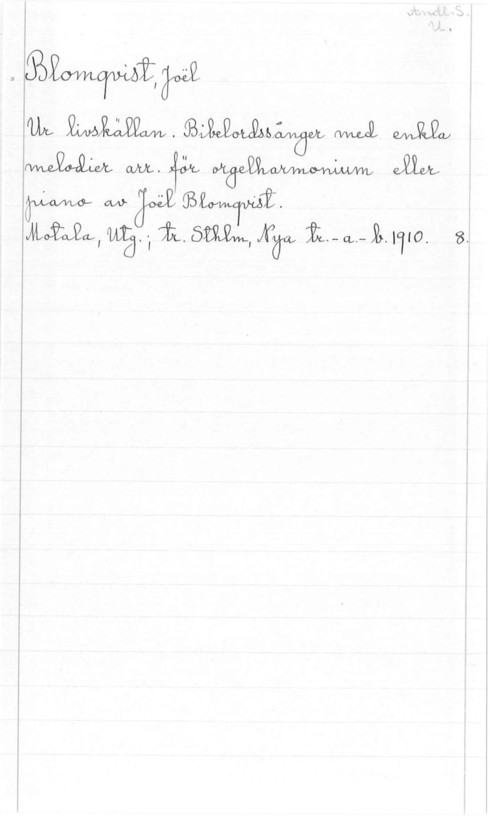 Andl. S.
U.
Blomqvist, Joël
Ur livskällan. Bibelordssånger med enkla
melodier arr. för orgelharmonium eller
piano av Joël Blomqvist.
Motala, Utg.; tr. Sthlm, Nya tr.-a.-b. 1910. 8.